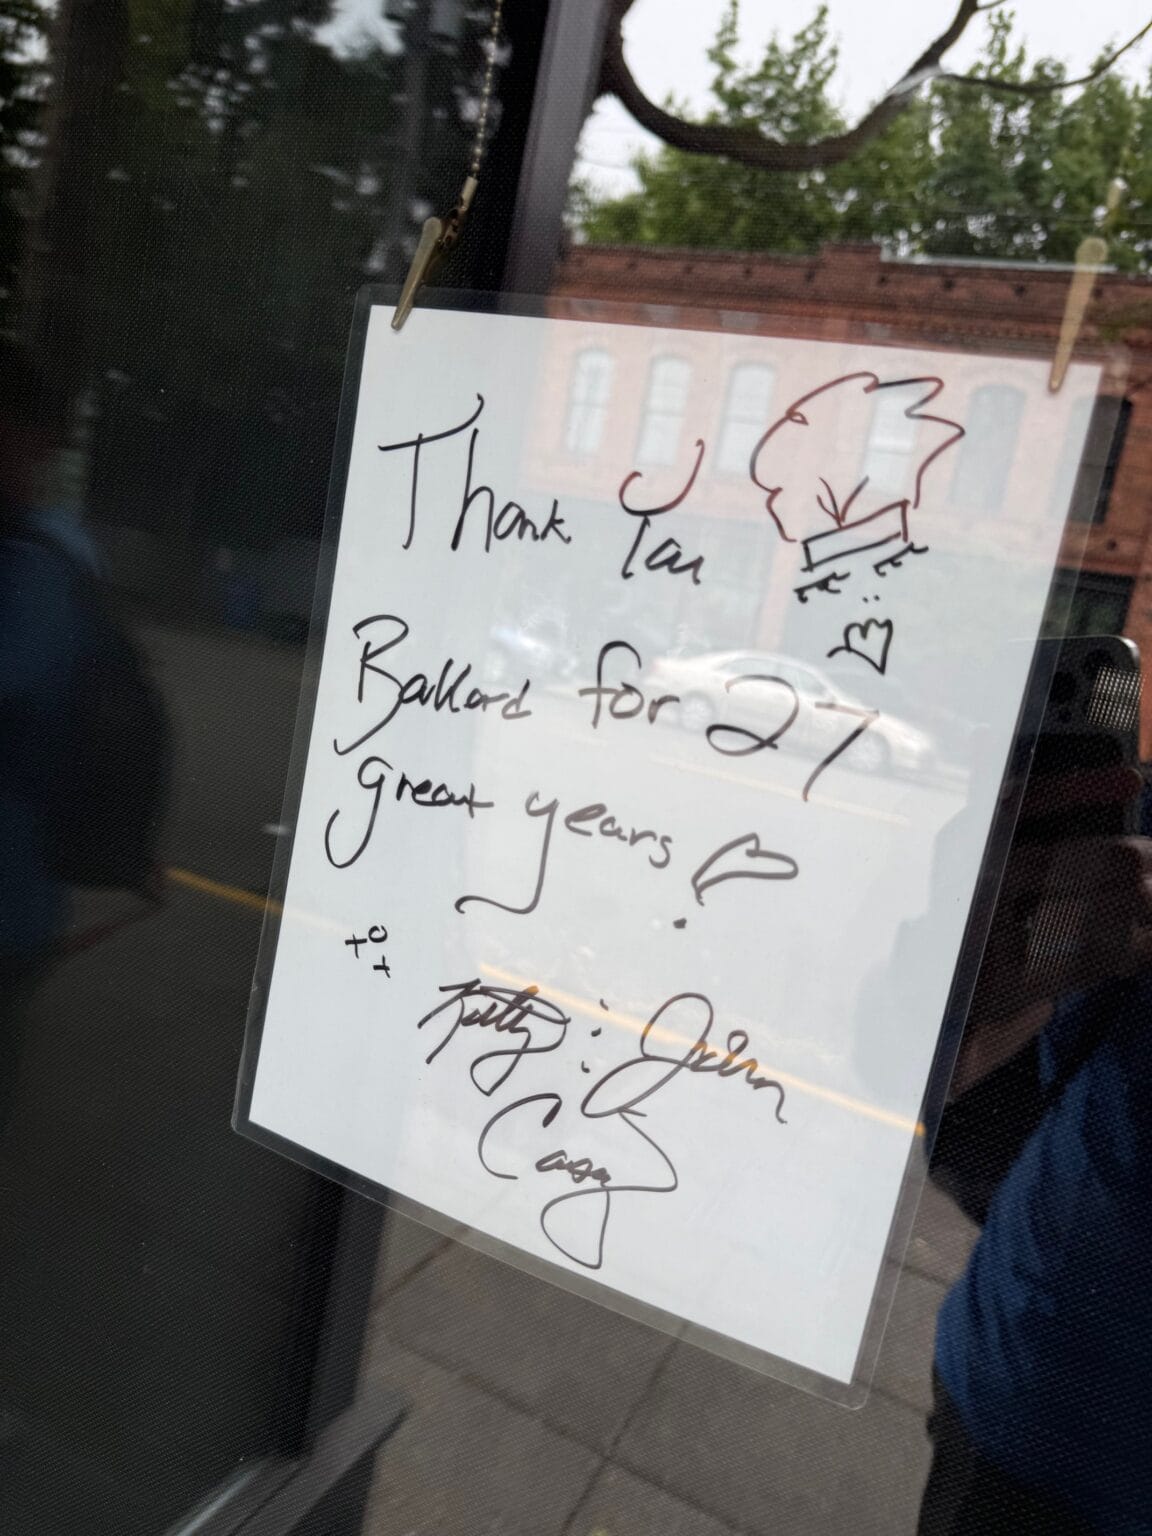 Thank You
Ballard for 27
great years!
Kitty : John
Casey